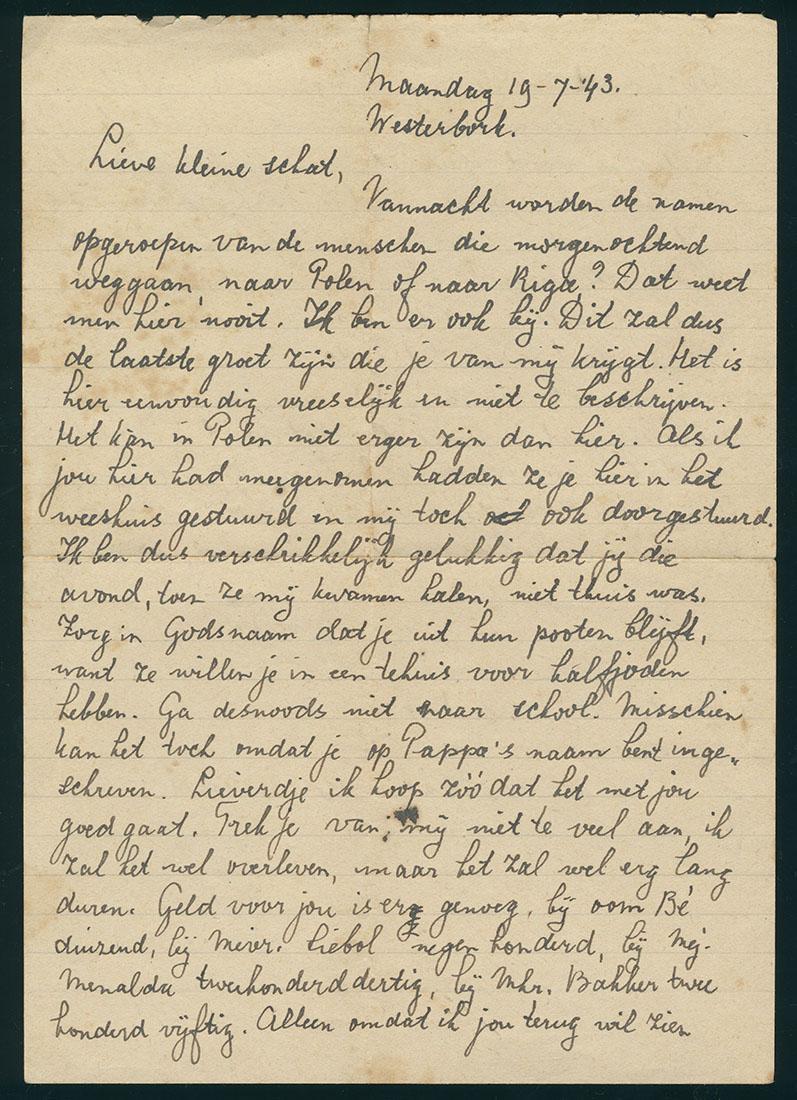 Maandag 19-7-'43.
Westerbork.
Lieve kleine schat,
Vannacht worden de namen
opgeroepen van de menschen die morgenochtend
weggaan, naar Polen of naar Riga? Dat weet
men hier nooit. Ik ben er ook bij. Dit zal dus
de laatste groet zijn die je van mij krijgt. Het is
hier eenvoudig vreeselijk en niet te beschrijven.
Het kan in Polen niet erger zijn dan hier. Als ik
jou hier had meegenomen hadden ze je hier in het
weeshuis gestuurd en mij toch ook doorgestuurd.
Ik ben dus verschrikkelijk gelukkig dat jij die
avond, toen ze mij kwamen halen, niet thuis was.
Zorg in Godsnaam dat je uit hun pooten blijft,
want ze willen je in een tehuis voor halfjoden
hebben. Ga desnoods niet naar school. Misschien
kan het toch omdat je op Pappa's naam bent inge„
schreven. Lieverdje ik hoop zóó dat het met jou
goed gaat. Trek je van mij niet te veel aan, ik
zal het wel overleven, maar het zal wel erg lang
duren. Geld voor jou is er genoeg, bij oom Bé
duizend, bij Mevr. Liebol negen honderd, bij Mej.
Menalda tweehonderd dertig, bij Mhr. Bakker twee
honderd vijftig. Alleen omdat ik jou terug wil zien